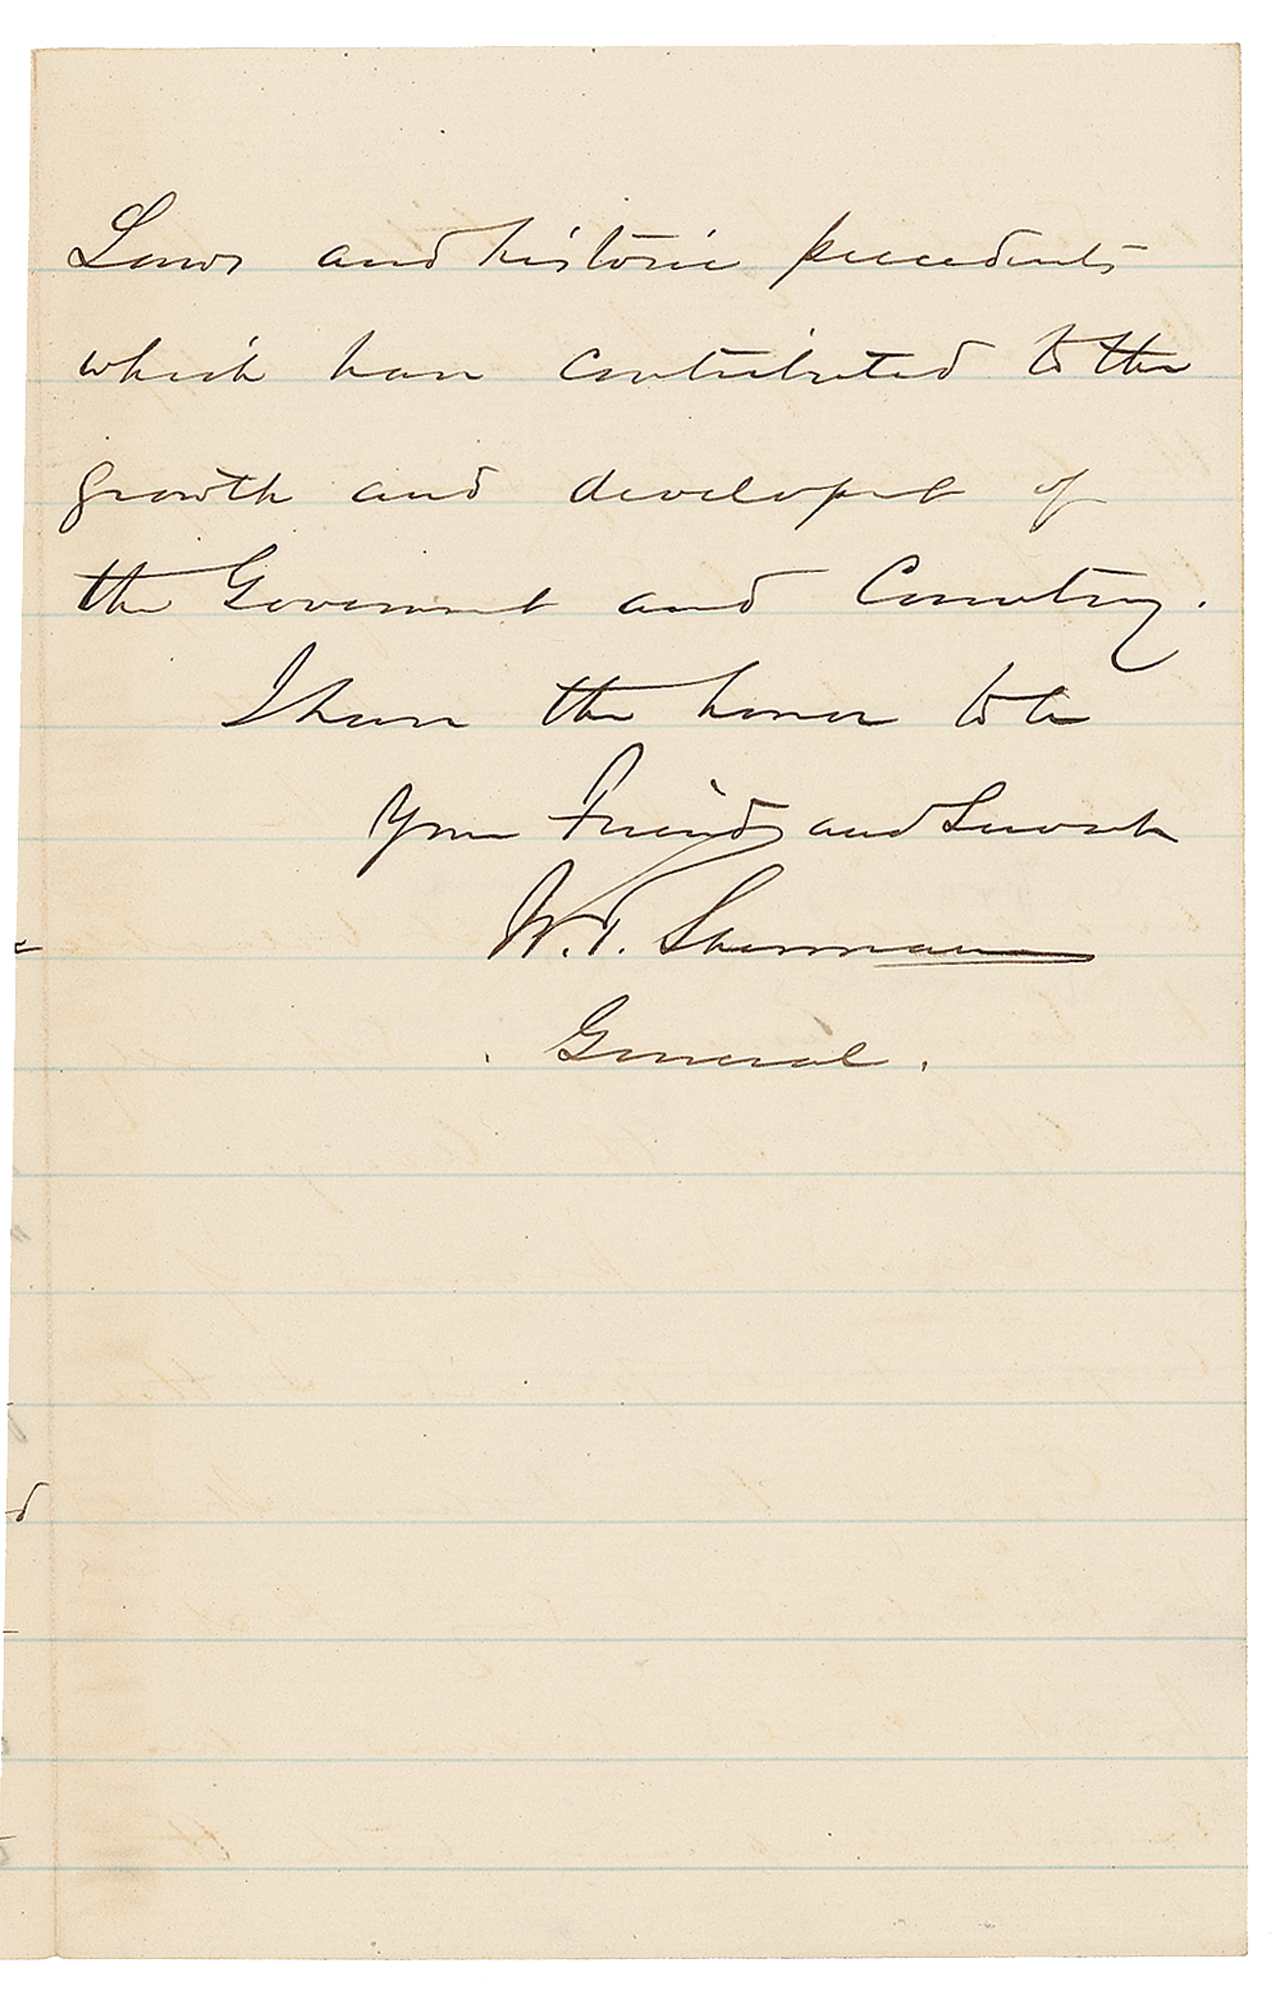 Laws and historic precedents
which have contributed to the
growth and developt of
the Government and Country.
I have the honor to be
Your Friend and Servant
W. T. Sherman
General.